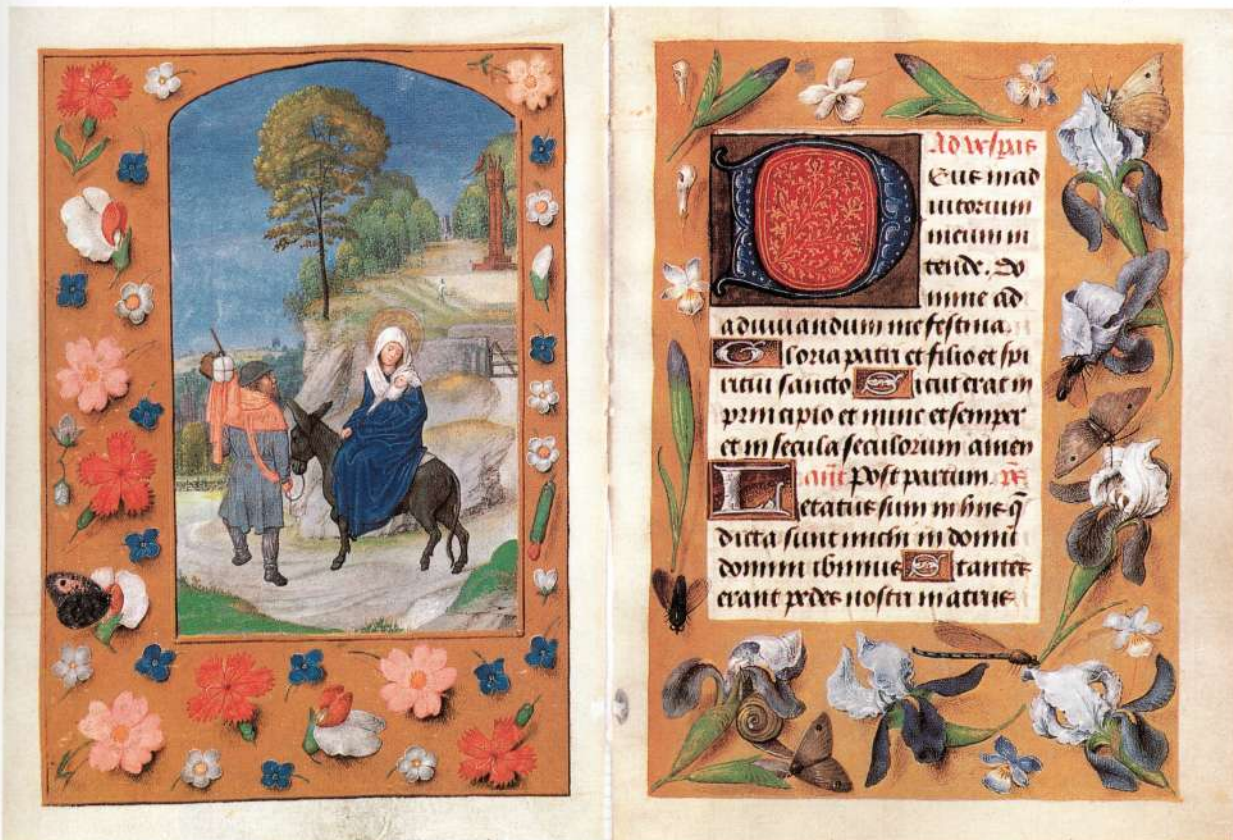 Ad vesp̄as
Deus in ad
iutorium
meum in
tende. Do
mine ad
adiuuandum me festina.
Gloria patri et filio et spi
ritui sancto Sicut erat in
principio et nunc et semper
et in secula seculorum amen
añt Post partum. ps̄
Letatus sum in hiis q̄
dicta sunt michi in domū
domini ibimus Stantes
erant pedes nostri in atriis